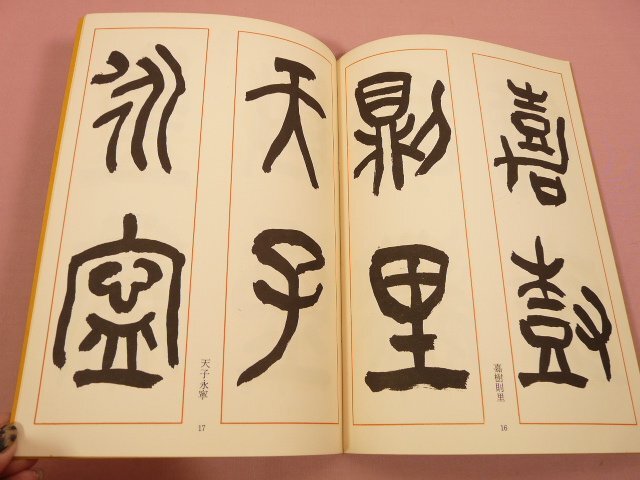 嘉樹
則里
嘉樹則里
16
天子
永寧
天子永寧
17